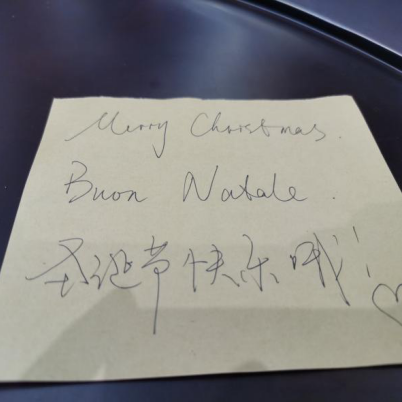 Merry Christmas.
Buon Natale.
圣诞节快乐哦!!